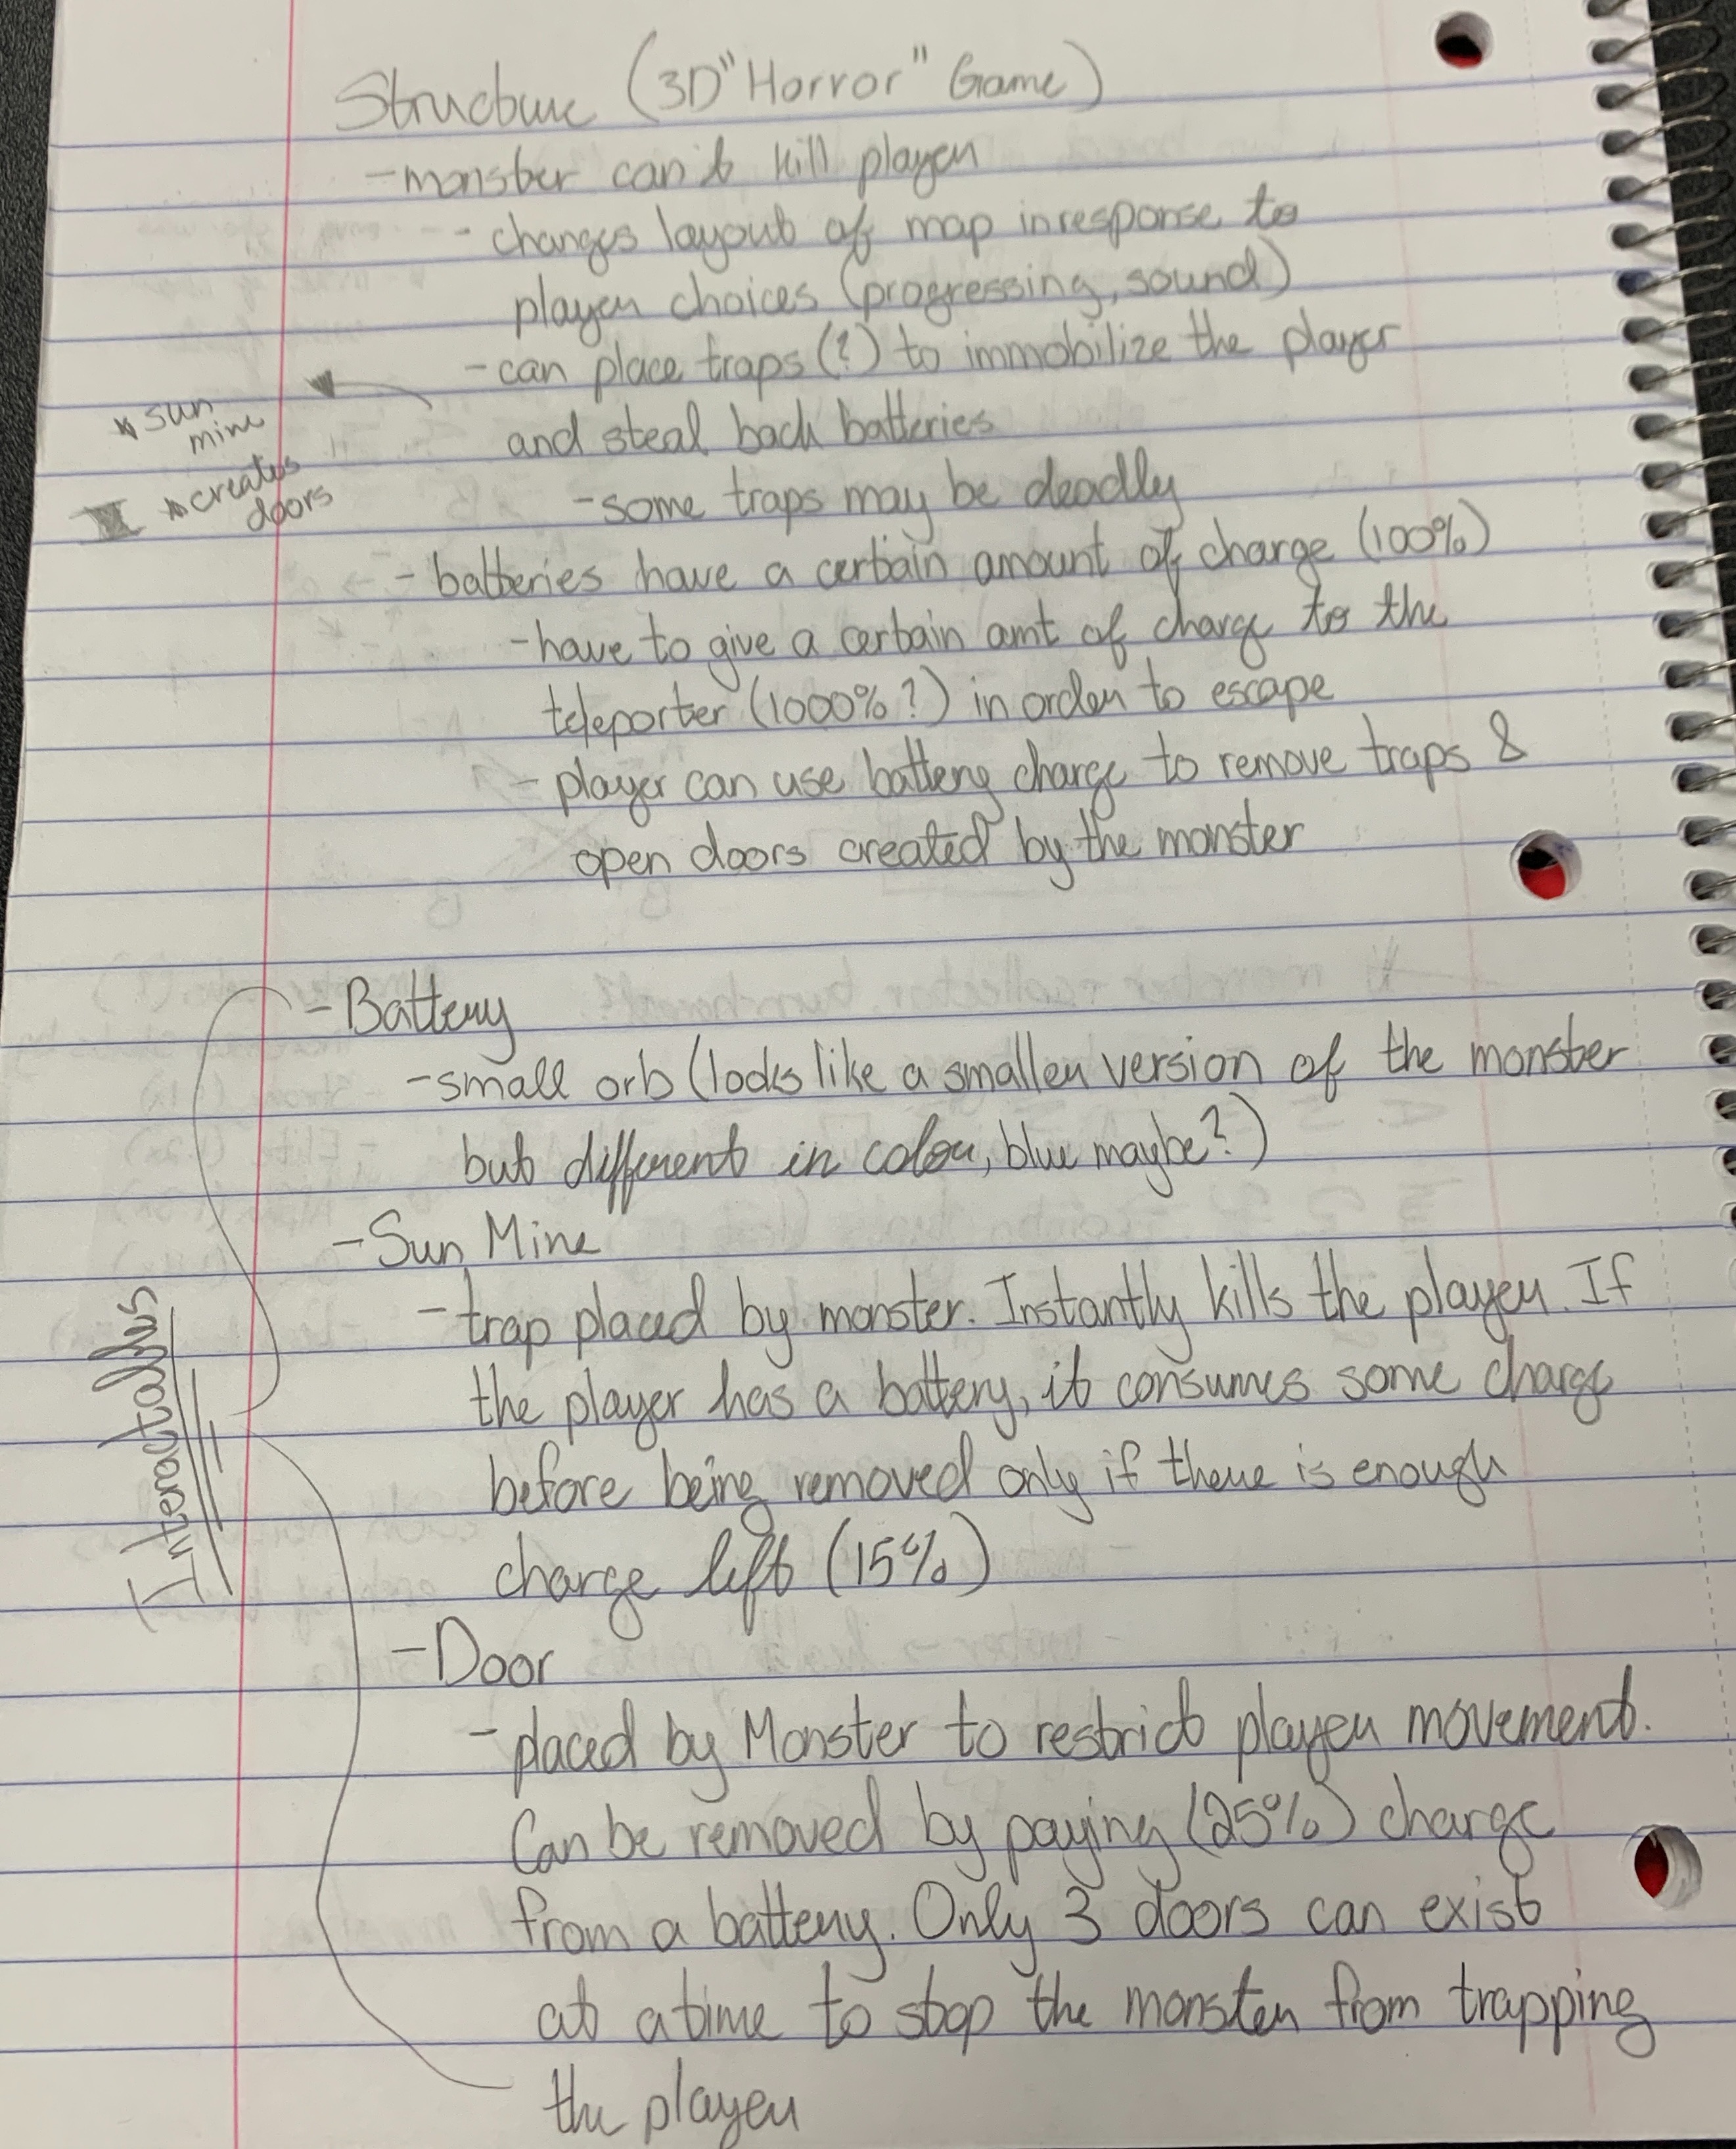 Structure (3D "Horror" Game)
- monster can't kill player
- changes layout of map in response to
player choices (progressing, sound)
- can place traps (?) to immobilize the player
* sun
mine
and steal back batteries
* creates
doors
- some traps may be deadly
- batteries have a certain amount of charge (100%)
- have to give a certain amt of charge to the
teleporter (1000% ?) in order to escape
- player can use battery charge to remove traps &
open doors created by the monster
- Battery
- small orb (looks like a smaller version of the monster
but different in colour, blue maybe?)
- Sun Mine
- trap placed by monster. Instantly kills the player. If
the player has a battery, it consumes some charge
before being removed only if there is enough
charge left (15%)
Interactables
- Door
- placed by Monster to restrict player movement.
Can be removed by paying (25%) charge
from a battery. Only 3 doors can exist
at a time to stop the monster from trapping
the player